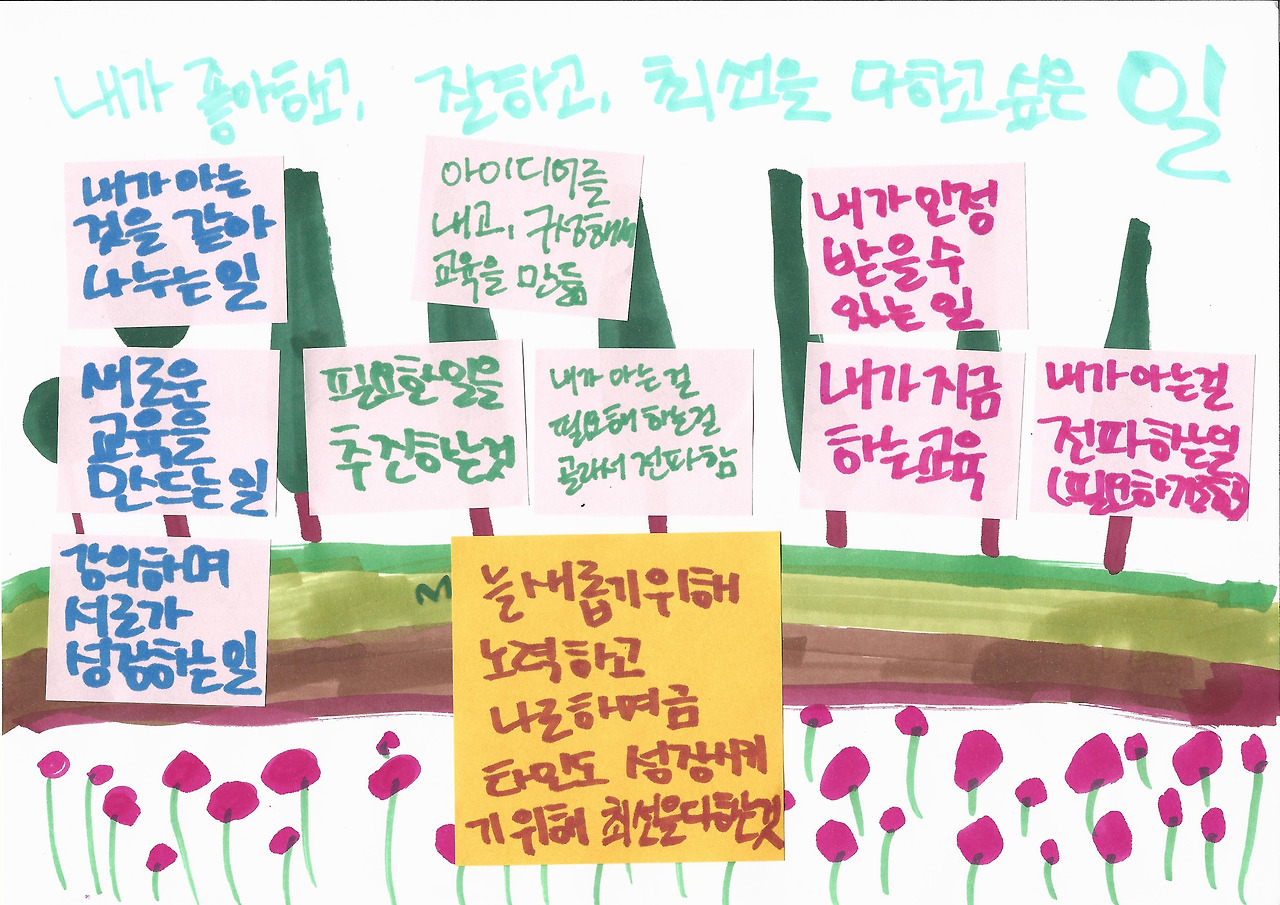 내가 좋아하고, 잘하고, 최선을 다하고 싶은 일
내가 아는
것을 같아
나누는 일
아이디어를
내고, 구성해서
교육을 만듦
내가 인정
받을 수
있는 일
새로운
교육을
만드는 일
필요한 일을
추진하는 것
내가 아는 걸
필요해 하는 걸
골라서 전파함
내가 지금
하는 교육
내가 아는 걸
전파하는 일
강의하며
서로가
성장하는 일
늘 새롭기 위해
노력하고
나로 하여금
타인도 성장시키
기 위해 최선을 다하는 것